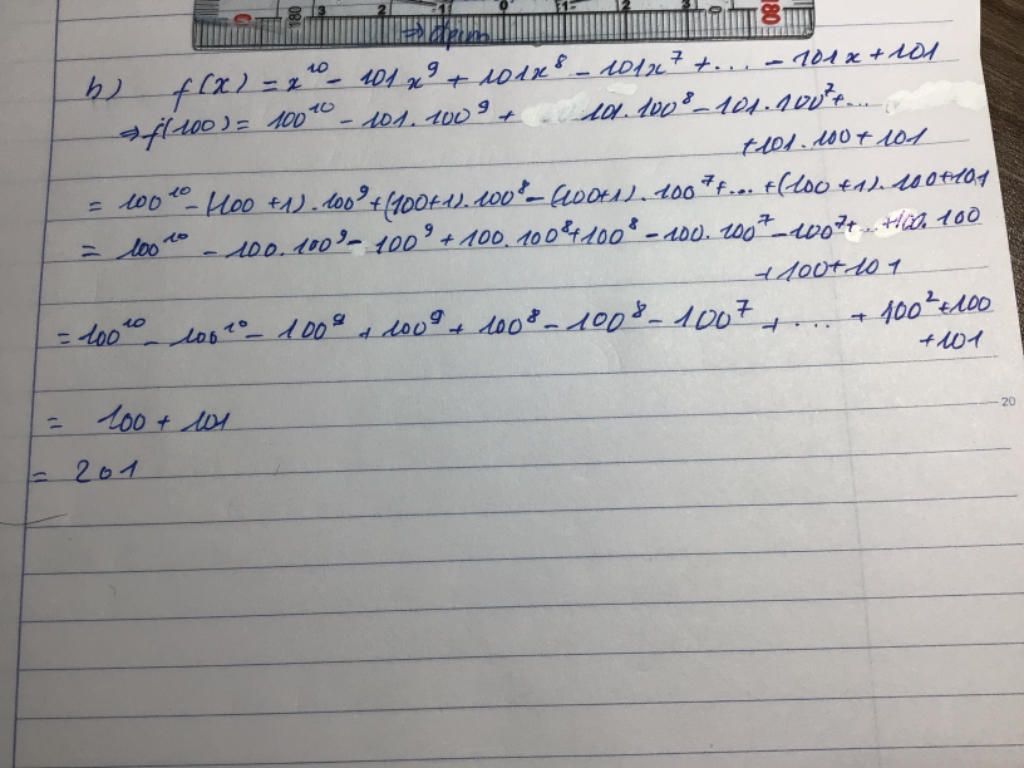 0 180 3 2 1 0 1 2 3 0 180
⇒ đpcm
b) f(x) = x¹⁰ - 101x⁹ + 101x⁸ - 101x⁷ + ... - 101x + 101
⇒ f(100) = 100¹⁰ - 101.100⁹ + 101.100⁸ - 101.100⁷ + ...
+101.100 + 101
= 100¹⁰ - (100 + 1).100⁹ + (100+1).100⁸ - (100+1).100⁷ + ... + (100 + 1).100 + 101
= 100¹⁰ - 100.100⁹ - 100⁹ + 100.100⁸ + 100⁸ - 100.100⁷ - 100⁷ + ... + 100.100
+ 100 + 101
= 100¹⁰ - 100¹⁰ - 100⁹ + 100⁹ + 100⁸ - 100⁸ - 100⁷ + ... + 100² + 100
+ 101
20
= 100 + 101
= 201